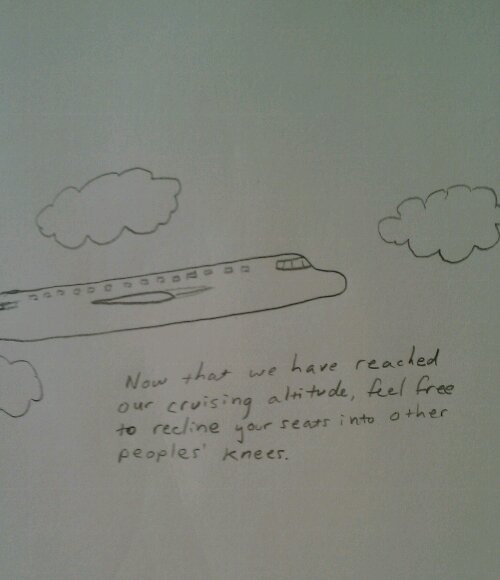 Now that we have reached
our cruising altitude, feel free
to recline your seats into other
peoples' knees.